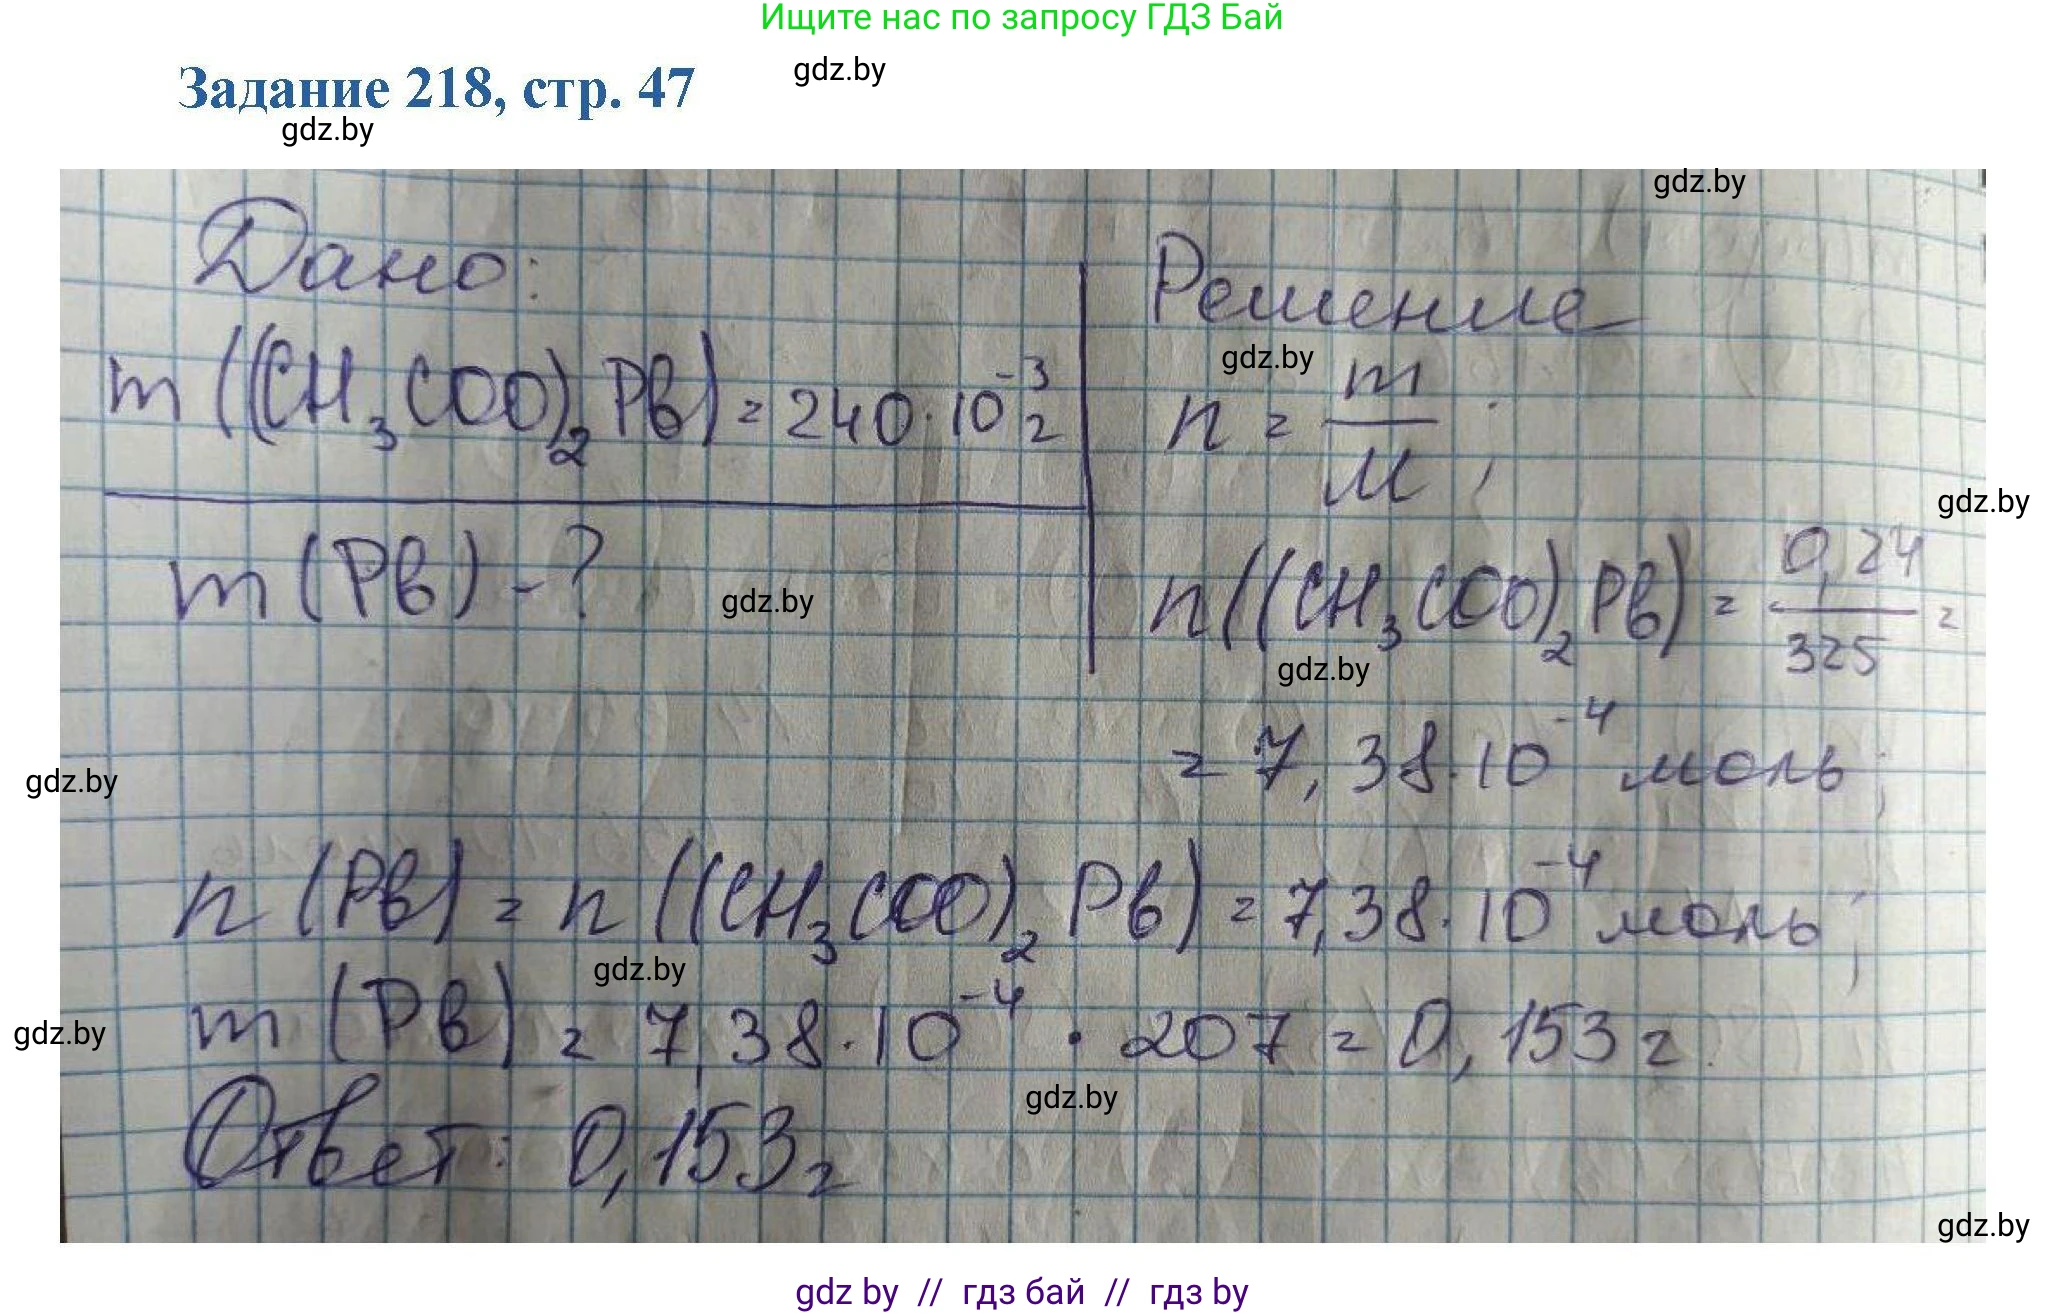 Ищите нас по запросу ГДЗ Бай
gdz.by
Задание 218, стр. 47
gdz.by
gdz.by
Дано:
m((CH₃COO)₂Pb) = 240·10⁻³ г
m(Pb) - ?
Решение
gdz.by
n = m/M;
gdz.by
n((CH₃COO)₂Pb) = 0,24/325 =
gdz.by
gdz.by
= 7,38·10⁻⁴ моль;
gdz.by
n(Pb) = n((CH₃COO)₂Pb) = 7,38·10⁻⁴ моль;
gdz.by
m(Pb) = 7,38·10⁻⁴ · 207 = 0,153 г.
gdz.by
gdz.by
Ответ: 0,153 г
gdz.by
gdz by // гдз бай // гдз by